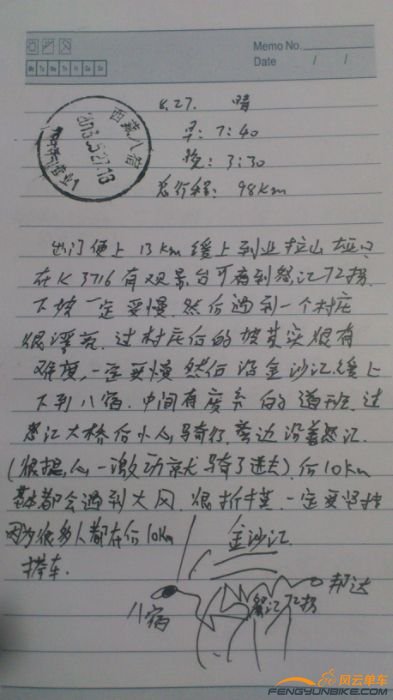 Memo No.
Mo Tu We Th Fr Sa Su
Date / /
西藏八宿
2013.5.27.13
5.27. 晴
早: 7:40
晚: 3:30
总行程: 98km
出门便上 13km 缓上到业拉山垭口
在K3716有观景台可看到怒江72拐
下坡一定要慢. 然后遇到一个村庄
很漂亮. 过村庄后的坡其实很有
难度. 一定要慢 然后沿金沙江缓上
下到八宿. 中间有废弃的道班. 过
怒江大桥后小心骑行. 旁边沿着怒江.
(很担心一激动就骑了进去). 后10km
基本都会遇到大风. 很折磨. 一定要坚持
因为很多人都在后10km
搭车.
金沙江
八宿
怒江72拐
邦达
风云单车
FENGYUNBIKE.COM